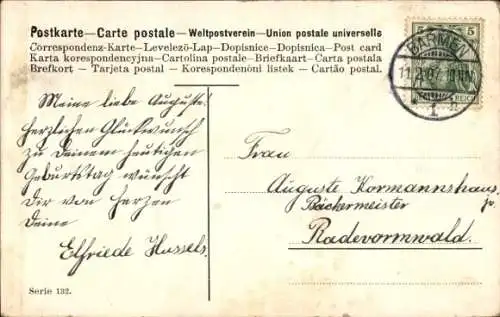 Postkarte — Carte postale — Weltpostverein — Union postale universelle
Correspondenz-Karte — Levelezö-Lap — Dopisnice — Dopisnica — Post card
Karta korespondencyjna — Cartolina postale — Briefkaart — Carta postala
Brefkort — Tarjeta postal — Korespondenční listek — Cartão postal.
5 5
BARMEN
11.2.07.
REICH
1
Meine liebe Auguste!
Herzlichen Glückwunsch
zu Deinem heutigen
Geburtstag wünscht
Dir von Herzen
Deine
Elfriede Hussels.
Frau
Auguste Kormannshaus
Bäckermeister
Radevormwald.
Serie 132.